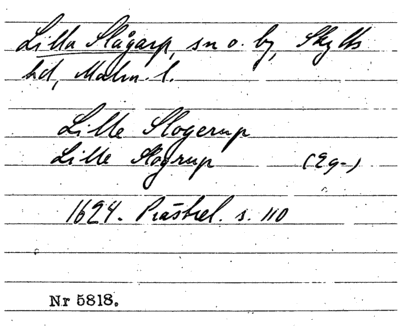 Lilla Slågarp, sn o. by, Skytts
hd, Malm. l.
Lille Slogerup
Lille Slogrup (Eg-)
1624. Prästrel. s. 110
Nr 5818.